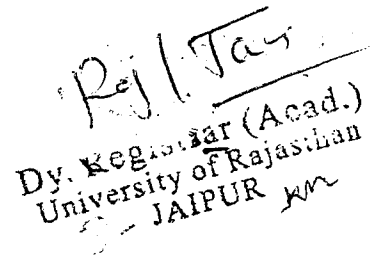 Raj | Jai
Dy. Registrar (Acad.)
University of Rajasthan
JAIPUR